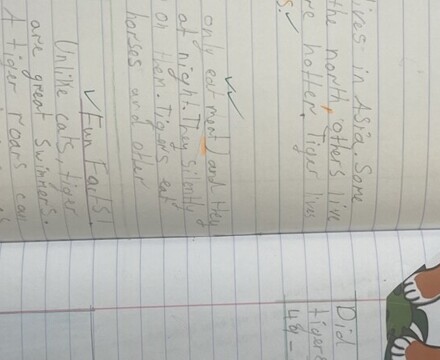 lives in Asia. Some
the north, others live
re hotter. Tiger lives
s.
only eat meat) and they
at night. They silently
on them. Tigers eat
horses and other
Fun Facts!
Unlike cats, tiger
are great swimmers.
A tiger roars can
Did
tigers